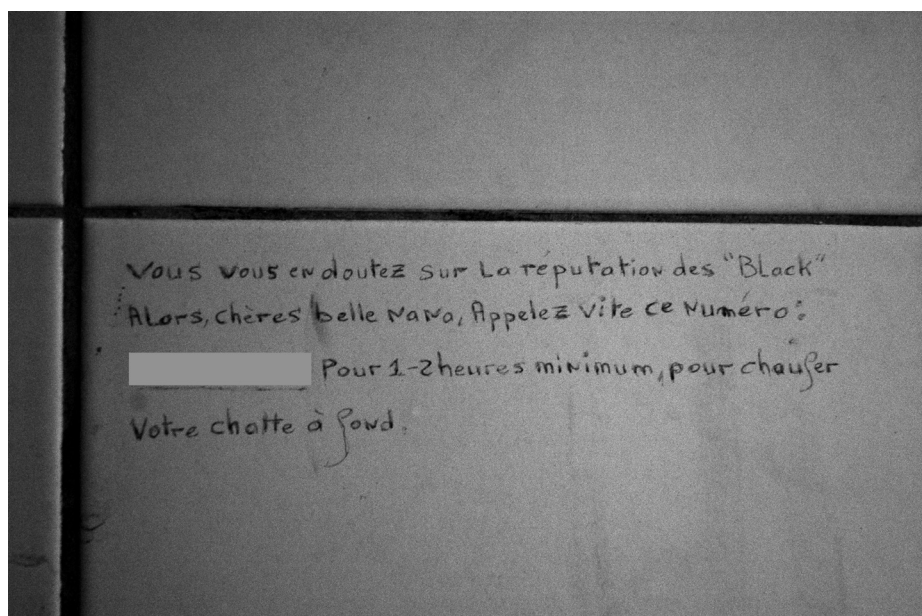 Vous vous en doutez sur La réputation des "Black"
ALors, chères belle NaNa, Appelez vite ce Numéro:
Pour 1-2heures minimum, pour chaufer
Votre chatte à fond.